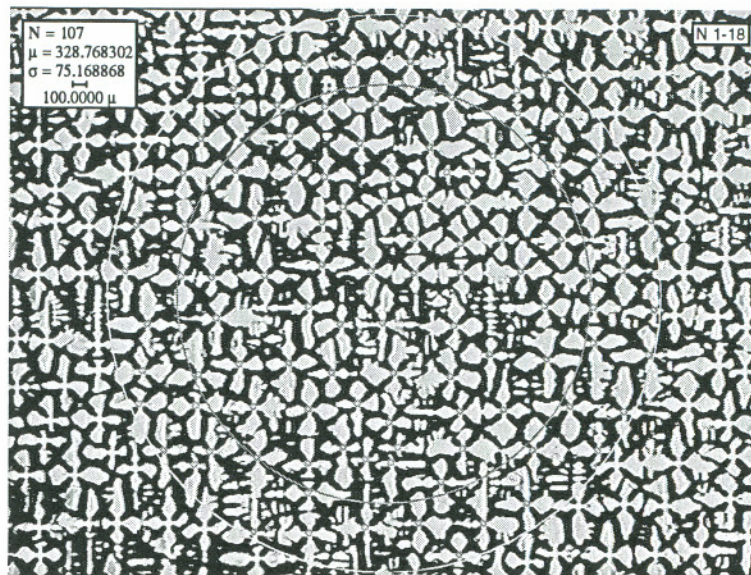 N = 107
μ = 328.768302
σ = 75.168868
100.0000 μ
N 1-18